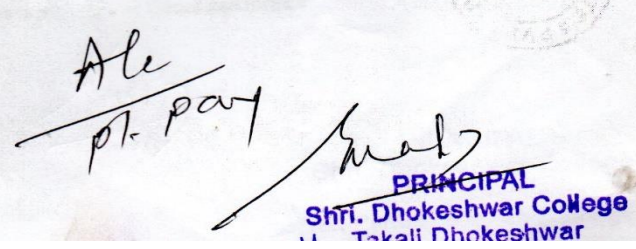 A/c
pl. pay
PRINCIPAL
Shri. Dhokeshwar College
Takali Dhokeshwar